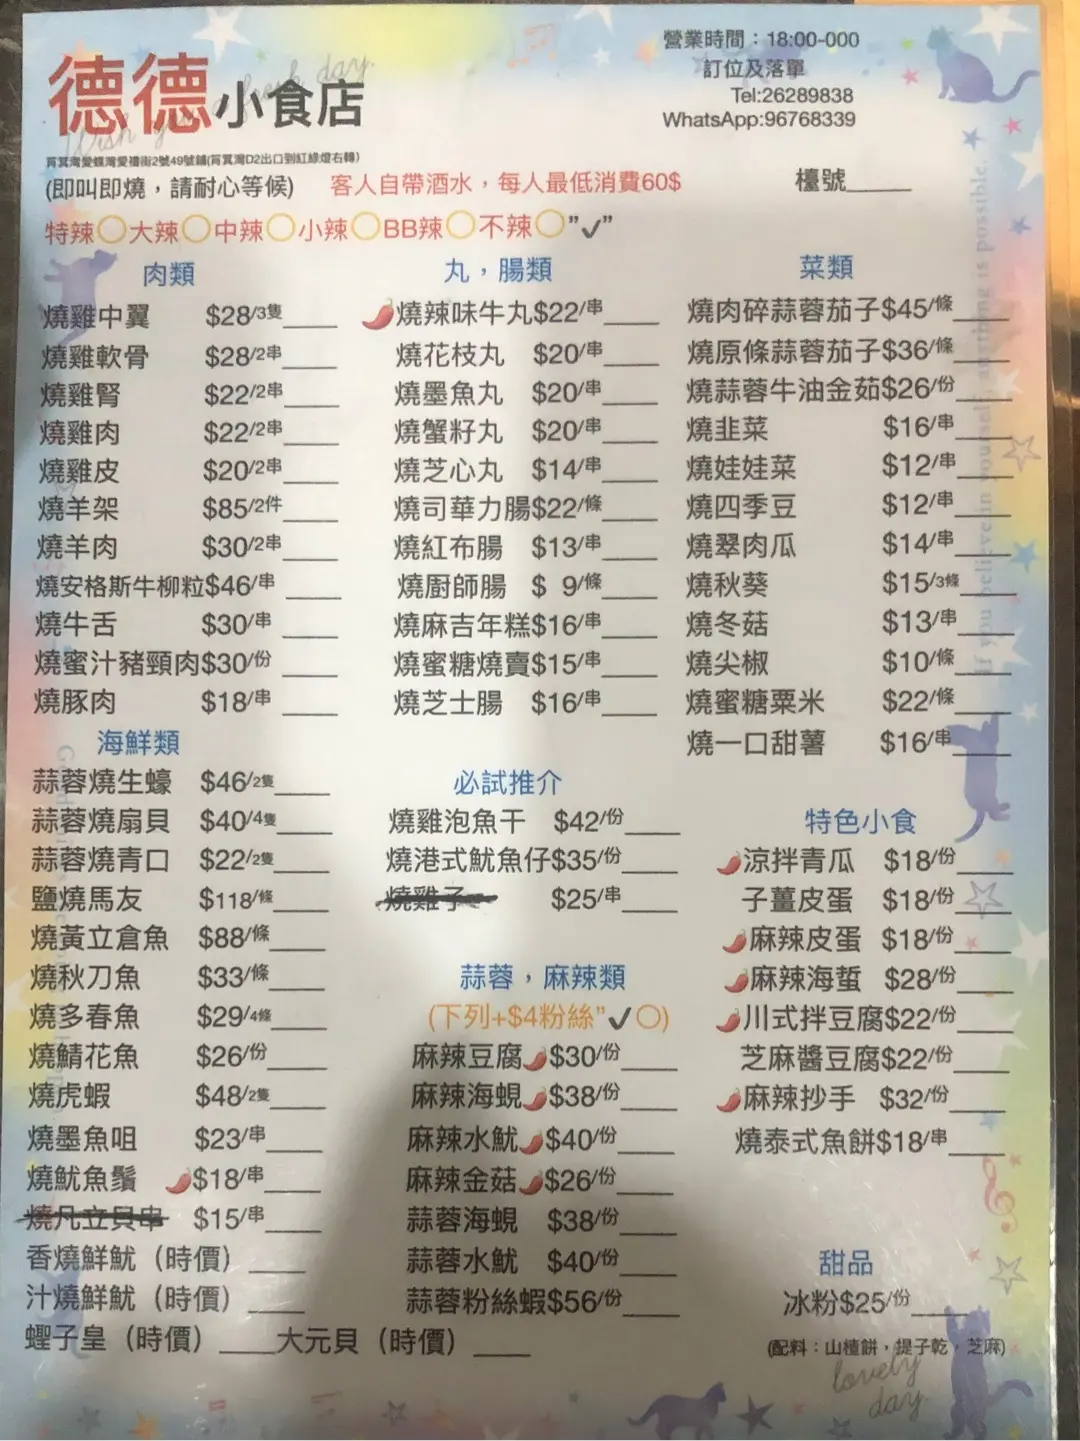 德德小食店
營業時間：18:00-000
訂位及落單
Tel:26289838
WhatsApp:96768339
筲箕灣愛蝶灣愛禮街2號49號鋪(筲箕灣D2出口到紅綠燈右轉)
(即叫即燒，請耐心等候) 客人自帶酒水，每人最低消費60$ 檯號_____
特辣○大辣○中辣○小辣○BB辣○不辣○"✓"
肉類
燒雞中翼 $28/3隻____
燒雞軟骨 $28/2串____
燒雞腎 $22/2串____
燒雞肉 $22/2串____
燒雞皮 $20/2串____
燒羊架 $85/2件____
燒羊肉 $30/2串____
燒安格斯牛柳粒$46/串____
燒牛舌 $30/串____
燒蜜汁豬頸肉$30/份____
燒豚肉 $18/串____
海鮮類
蒜蓉燒生蠔 $46/2隻____
蒜蓉燒扇貝 $40/4隻____
蒜蓉燒青口 $22/2隻____
鹽燒馬友 $118/條____
燒黃立倉魚 $88/條____
燒秋刀魚 $33/條____
燒多春魚 $29/4條____
燒鯖花魚 $26/份____
燒虎蝦 $48/2隻____
燒墨魚咀 $23/串____
燒魷魚鬚 $18/串____
燒凡立貝串 $15/串____
香燒鮮魷（時價）____
汁燒鮮魷（時價）____
蟶子皇（時價）____大元貝（時價）____
丸，腸類
燒辣味牛丸$22/串____
燒花枝丸 $20/串____
燒墨魚丸 $20/串____
燒蟹籽丸 $20/串____
燒芝心丸 $14/串____
燒司華力腸$22/條____
燒紅布腸 $13/串____
燒廚師腸 $ 9/條____
燒麻吉年糕$16/串____
燒蜜糖燒賣$15/串____
燒芝士腸 $16/串____
必試推介
燒雞泡魚干 $42/份____
燒港式魷魚仔$35/份____
燒雞子 $25/串____
蒜蓉，麻辣類
(下列+$4粉絲"✓○)
麻辣豆腐$30/份____
麻辣海蜆$38/份____
麻辣水魷$40/份____
麻辣金菇$26/份____
蒜蓉海蜆 $38/份____
蒜蓉水魷 $40/份____
蒜蓉粉絲蝦$56/份____
菜類
燒肉碎蒜蓉茄子$45/條____
燒原條蒜蓉茄子$36/條____
燒蒜蓉牛油金茹$26/份____
燒韭菜 $16/串____
燒娃娃菜 $12/串____
燒四季豆 $12/串____
燒翠肉瓜 $14/串____
燒秋葵 $15/3條____
燒冬菇 $13/串____
燒尖椒 $10/條____
燒蜜糖粟米 $22/條____
燒一口甜薯 $16/串____
特色小食
涼拌青瓜 $18/份____
子薑皮蛋 $18/份____
麻辣皮蛋 $18/份____
麻辣海蜇 $28/份____
川式拌豆腐$22/份____
芝麻醬豆腐$22/份____
麻辣抄手 $32/份____
燒泰式魚餅$18/串____
甜品
冰粉$25/份____
(配料：山楂餅，提子乾，芝麻)
If you believe in yourself anything is possible.
lovely
day